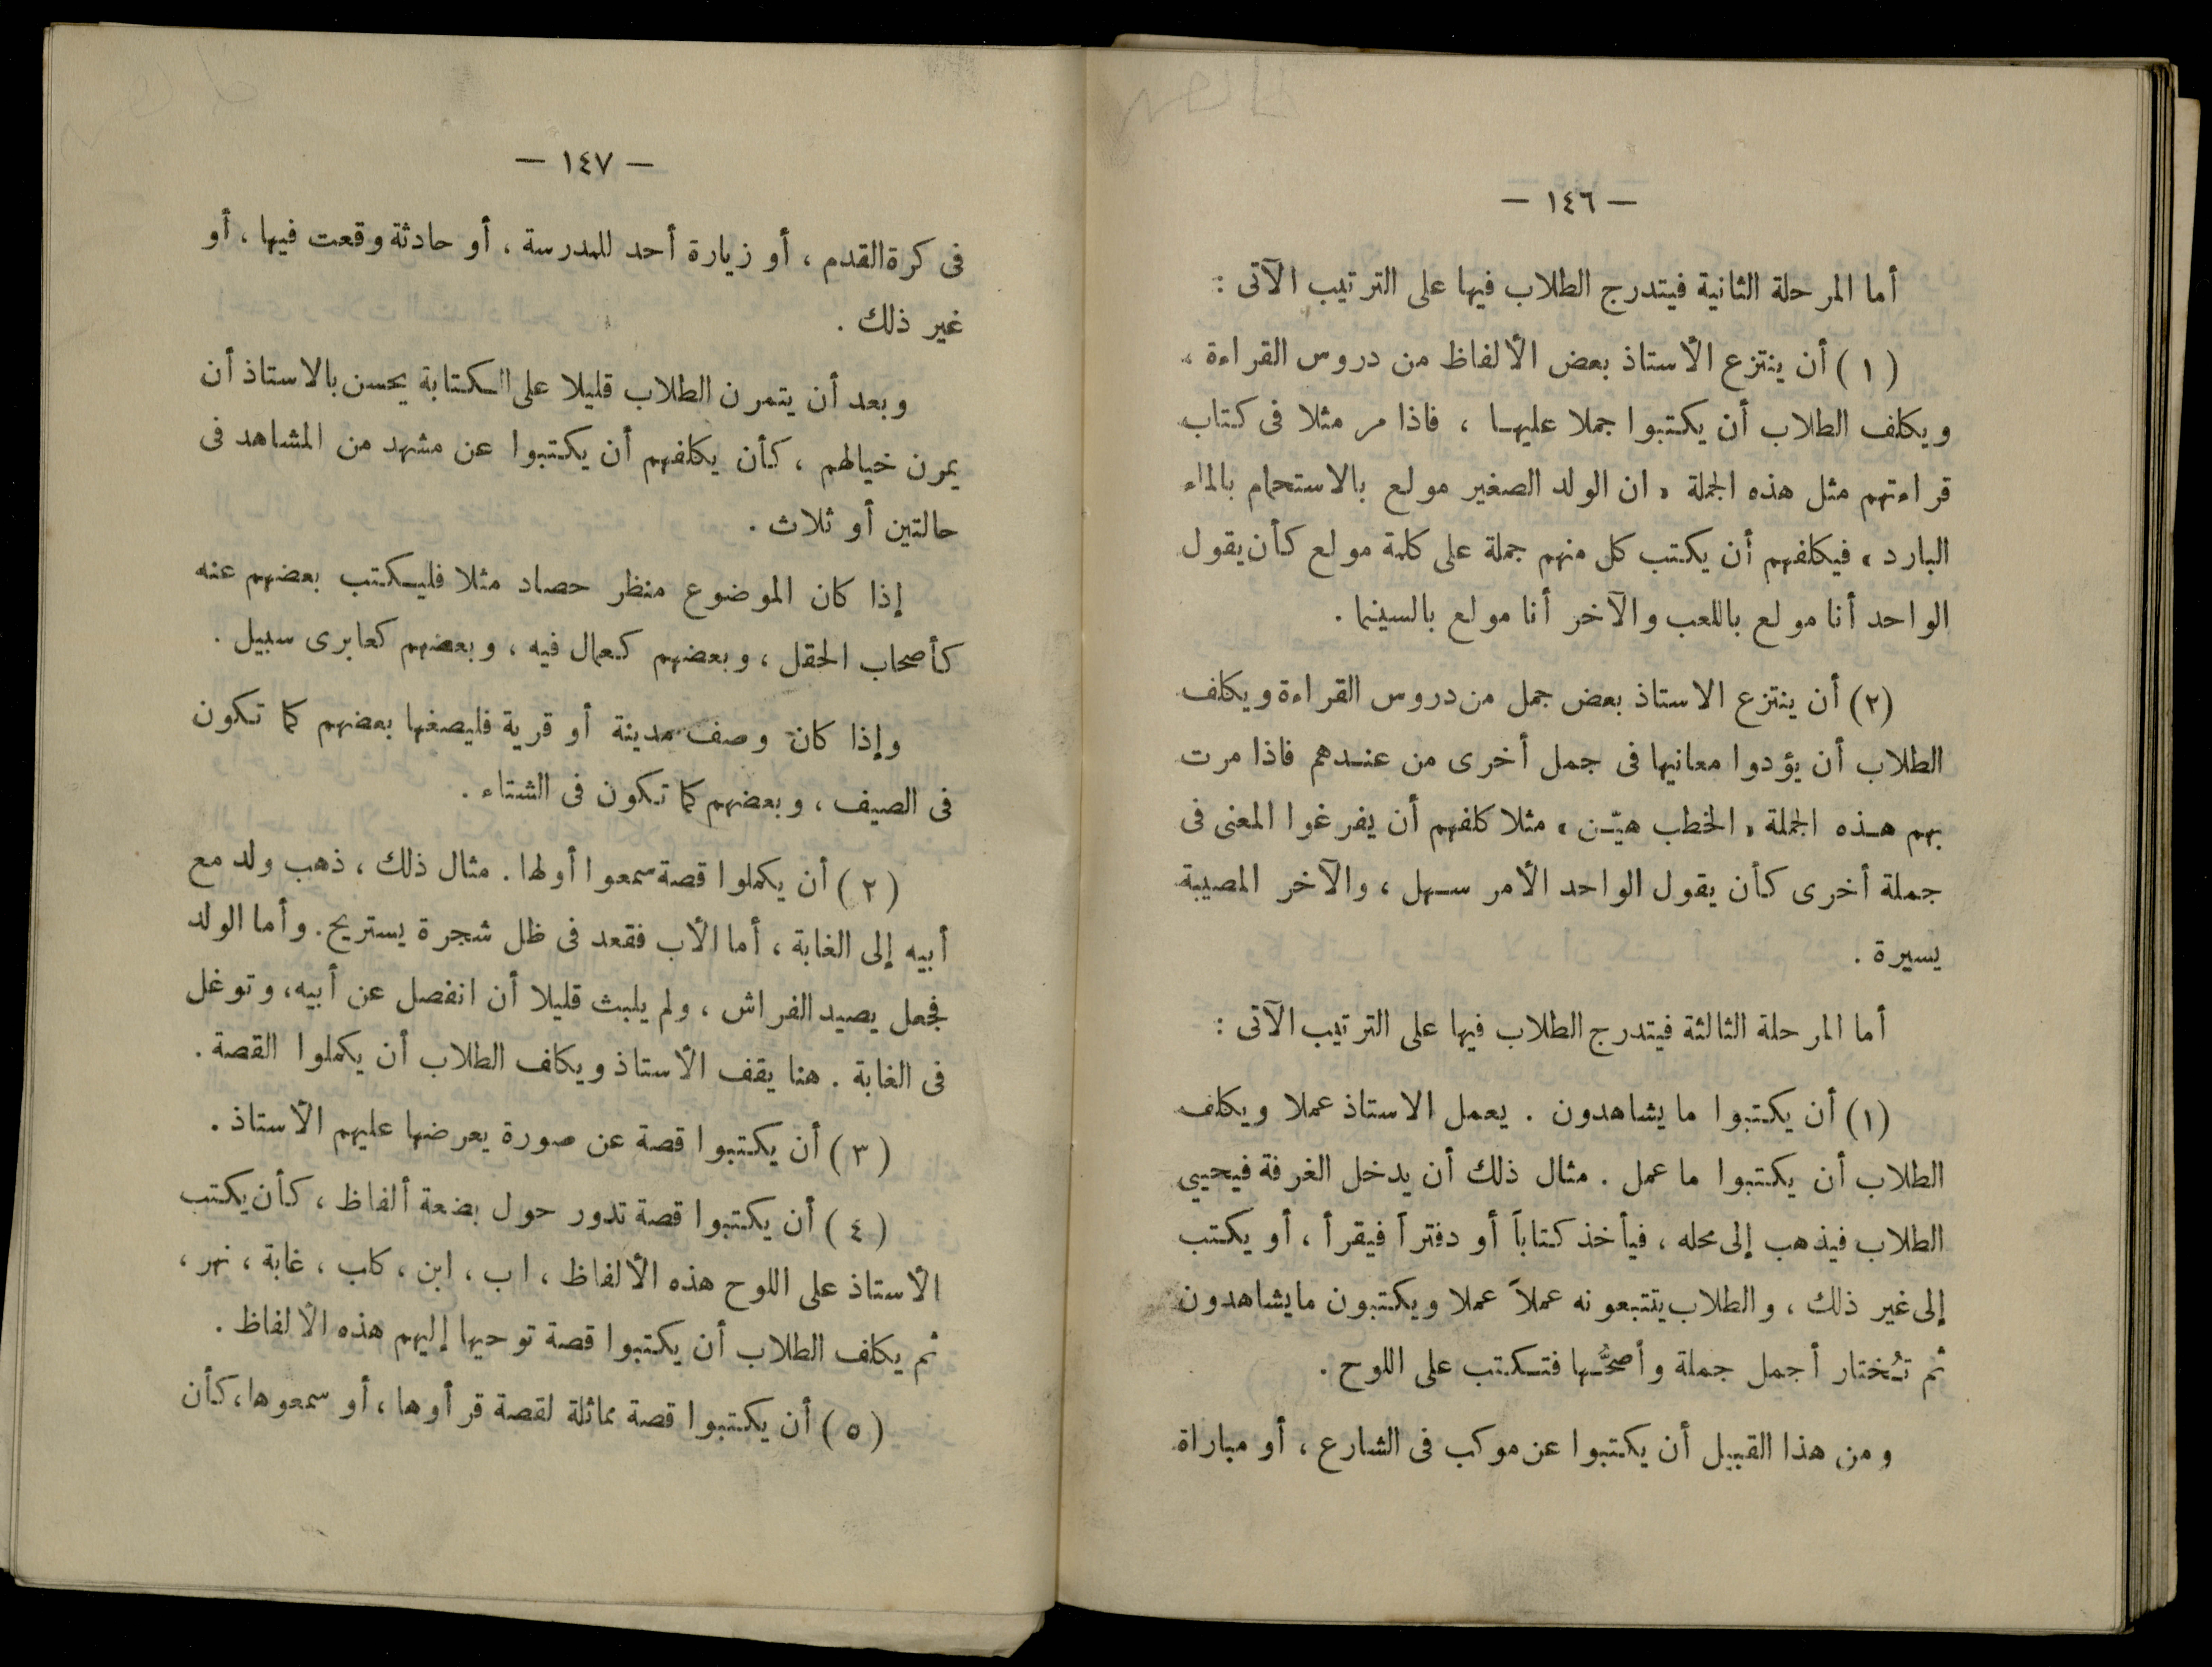 — ١٤٦ —
أما المرحلة الثانية فيتدرج الطلاب فيها على الترتيب الآتى :
( ١ ) أن ينتزع الأستاذ بعض الألفاظ من دروس القراءة ،
ويكلف الطلاب أن يكتبوا جملا عليها ، فاذا مر مثلا فى كتاب
قراءتهم مثل هذه الجملة « ان الولد الصغير مولع بالاستحمام بالماء
البارد » فيكلفهم أن يكتب كل منهم جملة على كلمة مولع كأن يقول
الواحد أنا مولع باللعب والآخر أنا مولع بالسينما .
(٢) أن ينتزع الاستاذ بعض جمل من دروس القراءة ويكلف
الطلاب أن يؤدوا معانيها فى جمل أخرى من عندهم فاذا مرت
بهم هذه الجملة « الخطب هيّن » مثلا كلفهم أن يفرغوا المعنى فى
جملة أخرى كأن يقول الواحد الأمر سهل ، والآخر المصيبة
يسيرة .
أما المرحلة الثالثة فيتدرج الطلاب فيها على الترتيب الآتى :
(١) أن يكتبوا ما يشاهدون . يعمل الاستاذ عملا ويكلف
الطلاب أن يكتبوا ما عمل . مثال ذلك أن يدخل الغرفة فيحيي
الطلاب فيذهب إلى محله ، فيأخذ كتاباً أو دفتراً فيقرأ ، أو يكتب
إلى غير ذلك ، والطلاب يتتبعونه عملاً عملا ويكتبون ما يشاهدون
ثم تُختار أجمل جملة وأصحُّها فتكتب على اللوح .
ومن هذا القبيل أن يكتبوا عن موكب فى الشارع ، أو مباراة
— ١٤٧ —
فى كرة القدم ، أو زيارة أحد للمدرسة ، أو حادثة وقعت فيها ، أو
غير ذلك .
وبعد أن يتمرن الطلاب قليلا على الكتابة يحسن بالاستاذ أن
يمرن خيالهم ، كأن يكلفهم أن يكتبوا عن مشهد من المشاهد فى
حالتين أو ثلاث .
إذا كان الموضوع منظر حصاد مثلا فليكتب بعضهم عنه
كأصحاب الحقل ، وبعضهم كعمال فيه ، وبعضهم كعابرى سبيل .
وإذا كان وصف مدينة أو قرية فليصفها بعضهم كما تكون
فى الصيف ، وبعضهم كما تكون فى الشتاء .
( ٢ ) أن يكملوا قصة سمعوا أولها . مثال ذلك ، ذهب ولد مع
أبيه إلى الغابة ، أما الأب فقعد فى ظل شجرة يستريح . وأما الولد
فجعل يصيد الفراش ، ولم يلبث قليلا أن انفصل عن أبيه ، وتوغل
فى الغابة . هنا يقف الأستاذ ويكلف الطلاب أن يكملوا القصة .
( ٣ ) أن يكتبوا قصة عن صورة يعرضها عليهم الأستاذ .
( ٤ ) أن يكتبوا قصة تدور حول بضعة ألفاظ ، كأن يكتب
الأستاذ على اللوح هذه الألفاظ ، اب ، ابن ، كلب ، غابة ، نهر ،
ثم يكلف الطلاب أن يكتبوا قصة توحيها إليهم هذه الألفاظ .
( ٥ ) أن يكتبوا قصة مماثلة لقصة قرأوها ، أو سمعوها ، كأن